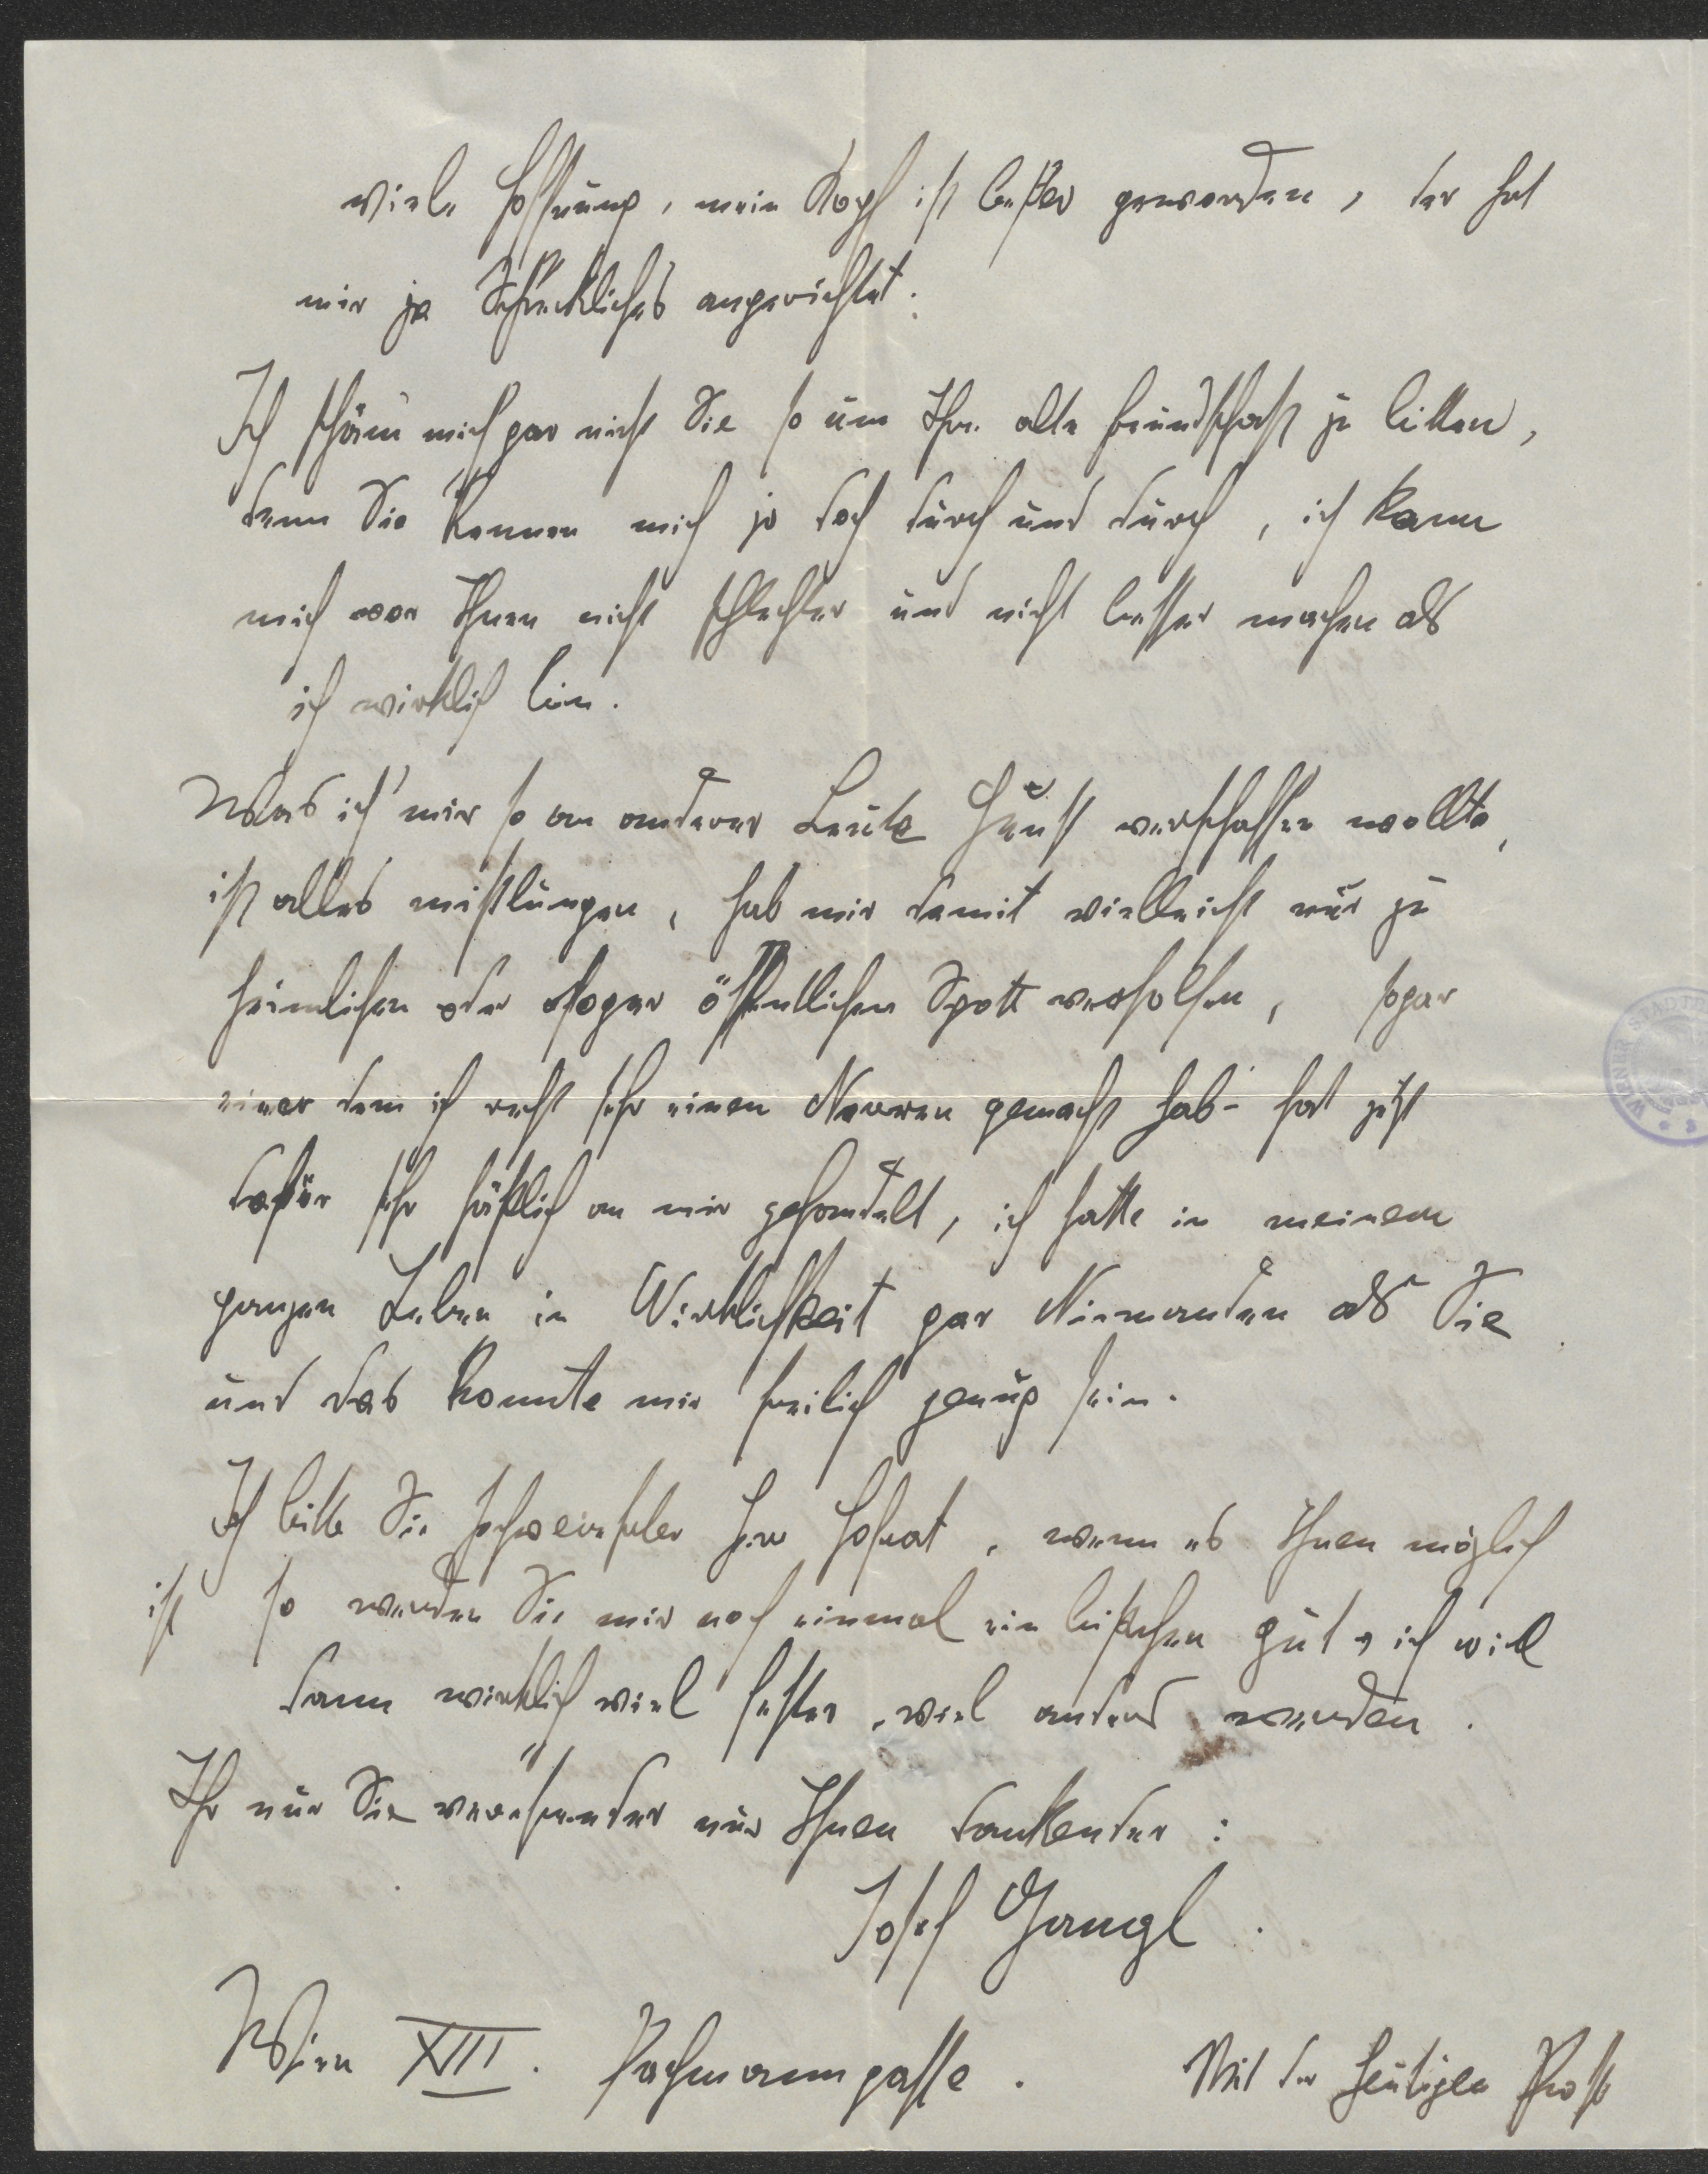 viele Hoffnung, mein Kopf ist besser geworden, der hat
mir ja Schreckliches angerichtet.
Ich schäm mich gar nicht Sie so um Ihre alte Freundschaft zu bitten,
denn Sie kennen mich ja doch durch und durch, ich kann
mich vor Ihnen nicht schlechter und nicht besser machen als
ich wirklich bin.
Was ich mir so an anderer Leute Gunst verschaffen wollte,
ist alles mißlungen, hab mir damit vielleicht nur zu
heimlichen oder sogar öffentlichen Spott verholfen, sogar
einer dem ich recht sehr einen Narren gemacht hab - hat jetzt
dafür sehr häßlich an mir gehandelt, ich hatte in meinem
ganzen Leben in Wirklichkeit gar Niemanden als Sie
und das konnte mir freilich genug sein.
Ich bitte Sie hochverehrter Herr Hofrat, wenn es Ihnen möglich
ist so werden Sie mir noch einmal ein bißchen gut, ich will
dann wirklich viel fester, viel anders werden.
Ihr nur Sie verehrender nur Ihnen dankender:
Josef Gangl.
Wien XIII. Pachmanngasse.
Mit der heutigen Post
WIENER STADT